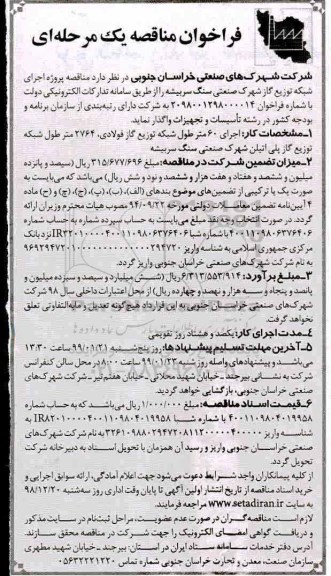 فراخوان مناقصه یک مرحله‌ای
شرکت شهرک‌های صنعتی خراسان جنوبی در نظر دارد مناقصه پروژه اجرای
شبکه توزیع گاز شهرک صنعتی سنگ سربیشه را از طریق سامانه تدارکات الکترونیکی دولت
با شماره فراخوان ۲۰۹۸۰۰۱۲۹۸۰۰۰۰۱۴ به شرکت دارای رتبه‌بندی از سازمان برنامه و
بودجه کشور در رشته تأسیسات و تجهیزات واگذار نماید.
۱-مشخصات کار: اجرای ۶۰ متر طول شبکه توزیع گاز فولادی، ۲۷۶۴ متر طول شبکه
توزیع گاز پلی اتیلن شهرک صنعتی سنگ سربیشه.
۲-میزان تضمین شرکت در مناقصه: مبلغ ۳۱۵/۶۷۷/۶۹۶ ریال (سیصد و پانزده
میلیون و ششصد و هفتاد و هفت هزار و ششصد و نود و شش ریال) می‌باشد که می‌بایست به
صورت یک یا ترکیبی از تضمین‌های موضوع بندهای (الف)، (ب)، (پ)، (ج)، (چ) و (ح) ماده
۴ آیین‌نامه تضمین معاملات دولتی مورخه ۹۴/۰۹/۲۲ مصوب هیات محترم وزیران ارائه
گردد. در صورت انتخاب وجه نقد مبلغ می‌بایست به حساب سپرده شماره به حساب شماره
۴۰۰۱۱۰۹۸۰۶۳۷۶۴۰۶ با شماره شبا نزد بانک
مرکزی جمهوری اسلامی به شناسه واریز
به نام شرکت شهرک‌های صنعتی خراسان جنوبی واریز گردد.
۳-مبلغ برآورد: ۶/۳۱۳/۵۵۳/۹۱۴ ریال (شش میلیارد و سیصد و سیزده میلیون و
پانصد و پنجاه و سه هزار و نهصد و چهارده ریال) از محل اعتبارات داخلی سال ۹۸ شرکت
شهرک‌های صنعتی خراسان جنوبی به این قرارداد هیچ‌گونه تعدیل و مابه‌التفاوتی تعلق
نخواهد گرفت.
۴-مدت اجرای کار: یکصد و هشتاد روز تقویمی
۵-آخرین مهلت تسلیم پیشنهادها: روز پنج‌شنبه ۹۹/۰۱/۲۱ ساعت ۱۳:۳۰
می‌باشد و پیشنهادهای واصله روز شنبه ۹۹/۰۱/۲۳ ساعت ۸:۰۰ در محل سالن کنفرانس
شرکت به نشانی بیرجند - خیابان شهید محلاتی - خیابان هفتم تیر - شرکت شهرک‌های
صنعتی خراسان جنوبی، بازگشایی خواهد گردید.
۶-قیمت اسناد مناقصه: مبلغ ۱/۰۰۰/۰۰۰ ریال می‌باشد که به حساب شماره
۴۰۰۱۱۰۹۸۰۴۰۱۹۹۵۸ با شماره شبا به
شناسه واریز به نام شرکت شهرک‌های
صنعتی خراسان جنوبی واریز و رسید آن همزمان با تحویل اسناد به دبیرخانه شرکت
تحویل گردد.
از کلیه پیمانکاران واجد شرایط دعوت می‌شود جهت اعلام آمادگی، ارائه سوابق اجرایی و
خرید اسناد مناقصه از تاریخ انتشار اولین آگهی تا پایان وقت اداری روز سه‌شنبه ۹۸/۱۲/۲۰
به سایت www.setadiran.ir مراجعه فرمایند.
لازم است مناقصه‌گران در صورت عدم عضویت، مراحل ثبت‌نام در سایت مذکور
و دریافت گواهی امضای الکترونیک را جهت شرکت در مناقصه محقق سازند.
آدرس دفتر خدمات سامانه ستاد ایران در استان: بیرجند - خیابان شهید مطهری
سازمان صنعت، معدن و تجارت خراسان جنوبی شماره تماس ۰۵۶۳۲۲۲۱۲۲۰